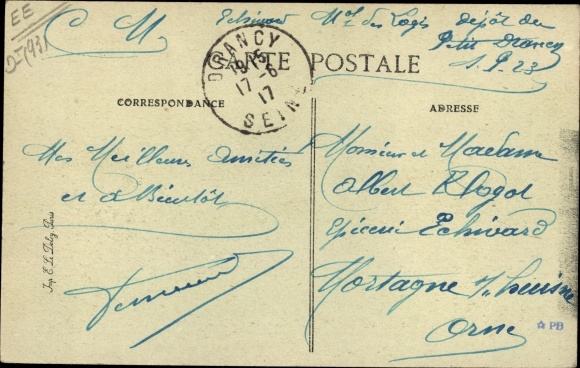 EE
C M
Echivard Mal des Logis dépôt du
Petit Drancy
S.P. 23
DRANCY
19 15
17-6
17
SEINE
CARTE POSTALE
CORRESPONDANCE
ADRESSE
Mes Meilleures Amitiés
et à Bientôt
Monsieur et Madame
Albert
Epicerie Echivard
Mortagne s/ huisne
Orne
Imp. E. Le Deley, Paris
PB